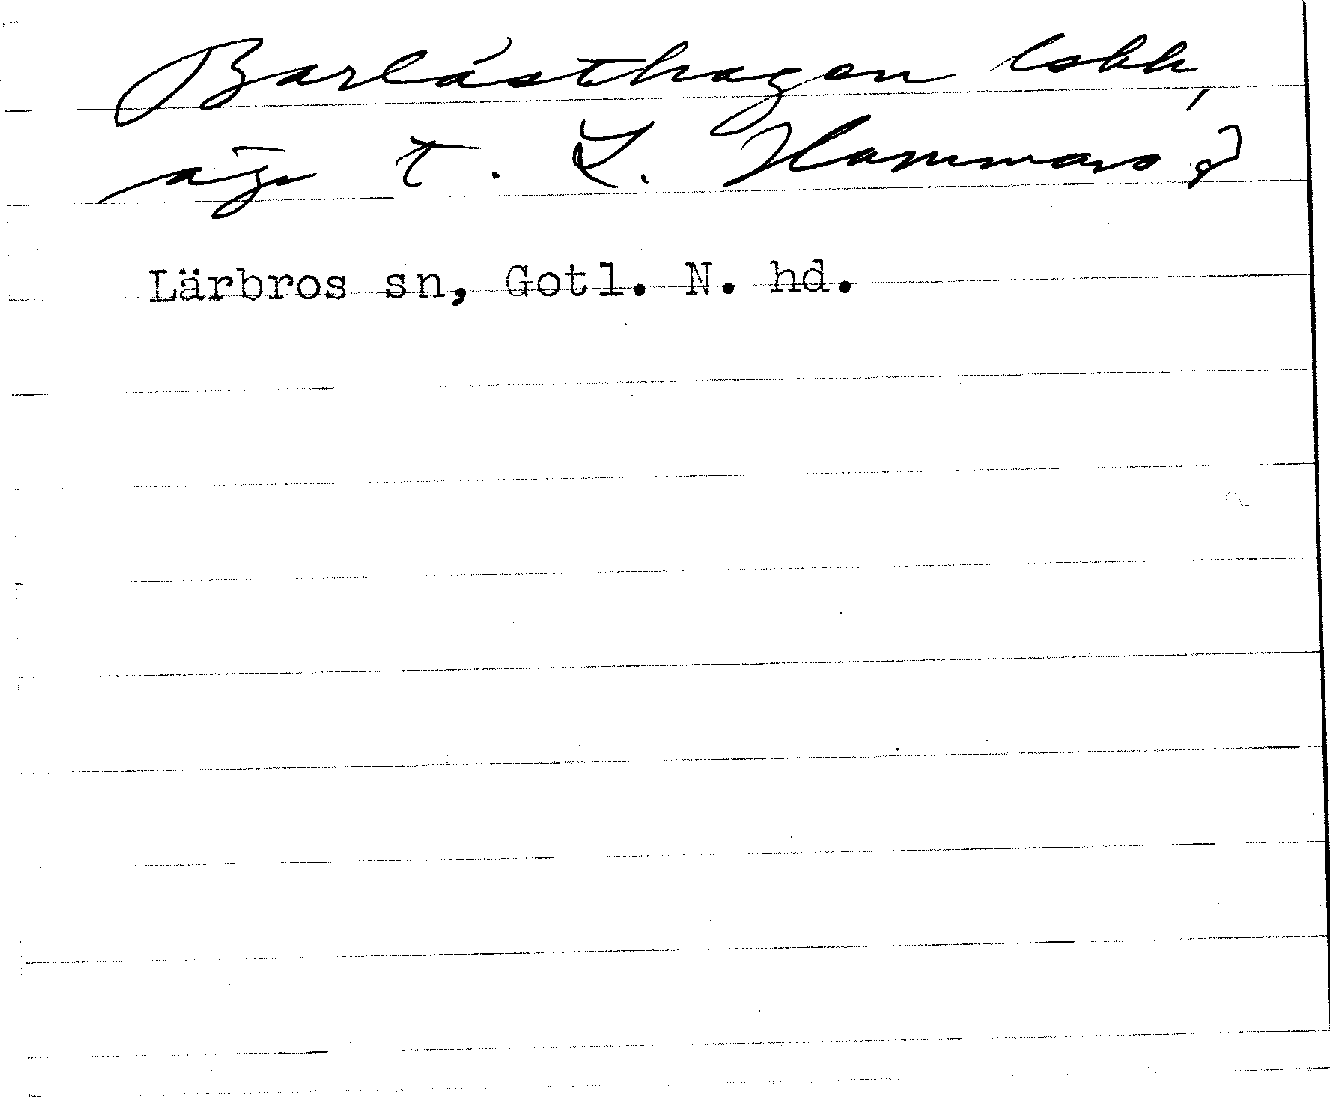 Barlästhagen
äga t. L. Hammars?
Lärbros sn, Gotl. N. hd.